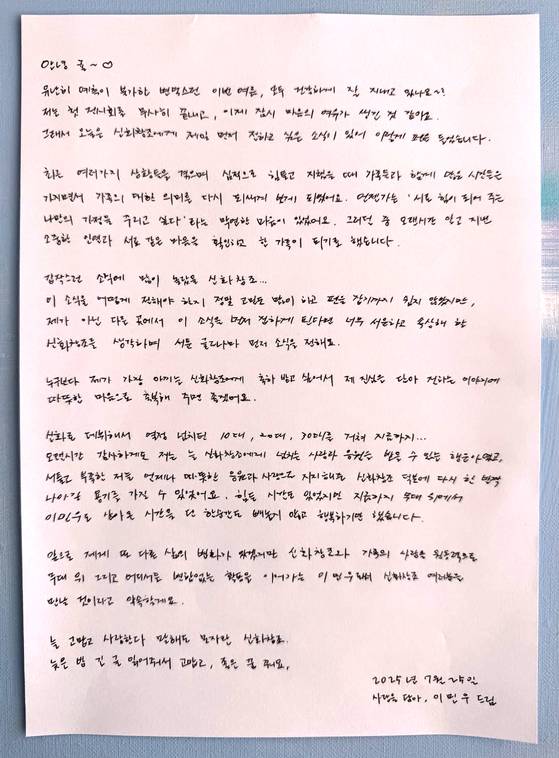 안녕 귤~♡
유난히 예측이 불가한 변덕스런 이번 여름, 모두 건강하게 잘 지내고 있나요~?
저는 첫 전시회를 무사히 끝내고, 이제 잠시 마음의 여유가 생긴 것 같아요.
그래서 오늘은 신화창조에게 제일 먼저 전하고 싶은 소식이 있어 이렇게 펜을 들었습니다.
최근 여러가지 상황들을 겪으며 심적으로 힘들고 지쳤을 때 가족들과 함께 많은 시간들을
가지면서 가족의 대한 의미를 다시 되새기게 되었어요. 언젠가는 '서로 힘이 되어 주는
나만의 가정을 꾸리고 싶다'라는 막연한 마음이 있었어요. 그러던 중 오랜시간 알고 지낸
소중한 인연과 서로 같은 마음을 확인하고 한 가족이 되기로 했습니다.
갑작스런 소식에 많이 놀랐을 신화창조...
이 소식을 어떻게 전해야 하지 정말 고민도 많이 하고 펜을 잡기까지 쉽지 않았지만,
제가 아닌 다른 곳에서 이 소식을 먼저 접하게 된다면 너무 서운하고 속상해 할
신화창조를 생각하며 서툰 글로나마 먼저 소식을 전해요.
누구보다 제가 가장 아끼는 신화창조에게 축하 받고 싶어서 제 진심을 담아 전하는 이야기에
따뜻한 마음으로 축복해 주면 좋겠어요.
신화로 데뷔해서 열정 넘치던 10대, 20대, 30대를 거쳐 지금까지...
오랜시간 감사하게도 저는 늘 신화창조에게 넘치는 사랑과 응원을 받을 수 있는 행운아였고,
서툴고 부족한 저를 언제나 따뜻한 응원과 사랑으로 지지해준 신화창조 덕분에 다시 한 번
나아갈 용기를 가질 수 있었어요. 힘든 시간도 있었지만 지금까지 무대 위에서
이민우로 살아온 시간을 단 한순간도 빼놓지 않고 행복하기만 했습니다.
앞으로 제게 또 다른 삶의 변화가 있겠지만 신화창조와 가족의 사랑을 원동력으로
무대 위 그리고 어디서든 변함없는 활동을 이어가는 이민우로 신화창조 여러분을
만날 것이라고 약속할게요.
늘 고맙고 사랑한다 말해도 모자란 신화창조.
늦은 밤 긴 글 읽어줘서 고맙고, 좋은 꿈 꿔요.
2025년 7월 25일
사랑을 담아, 이민우 드림